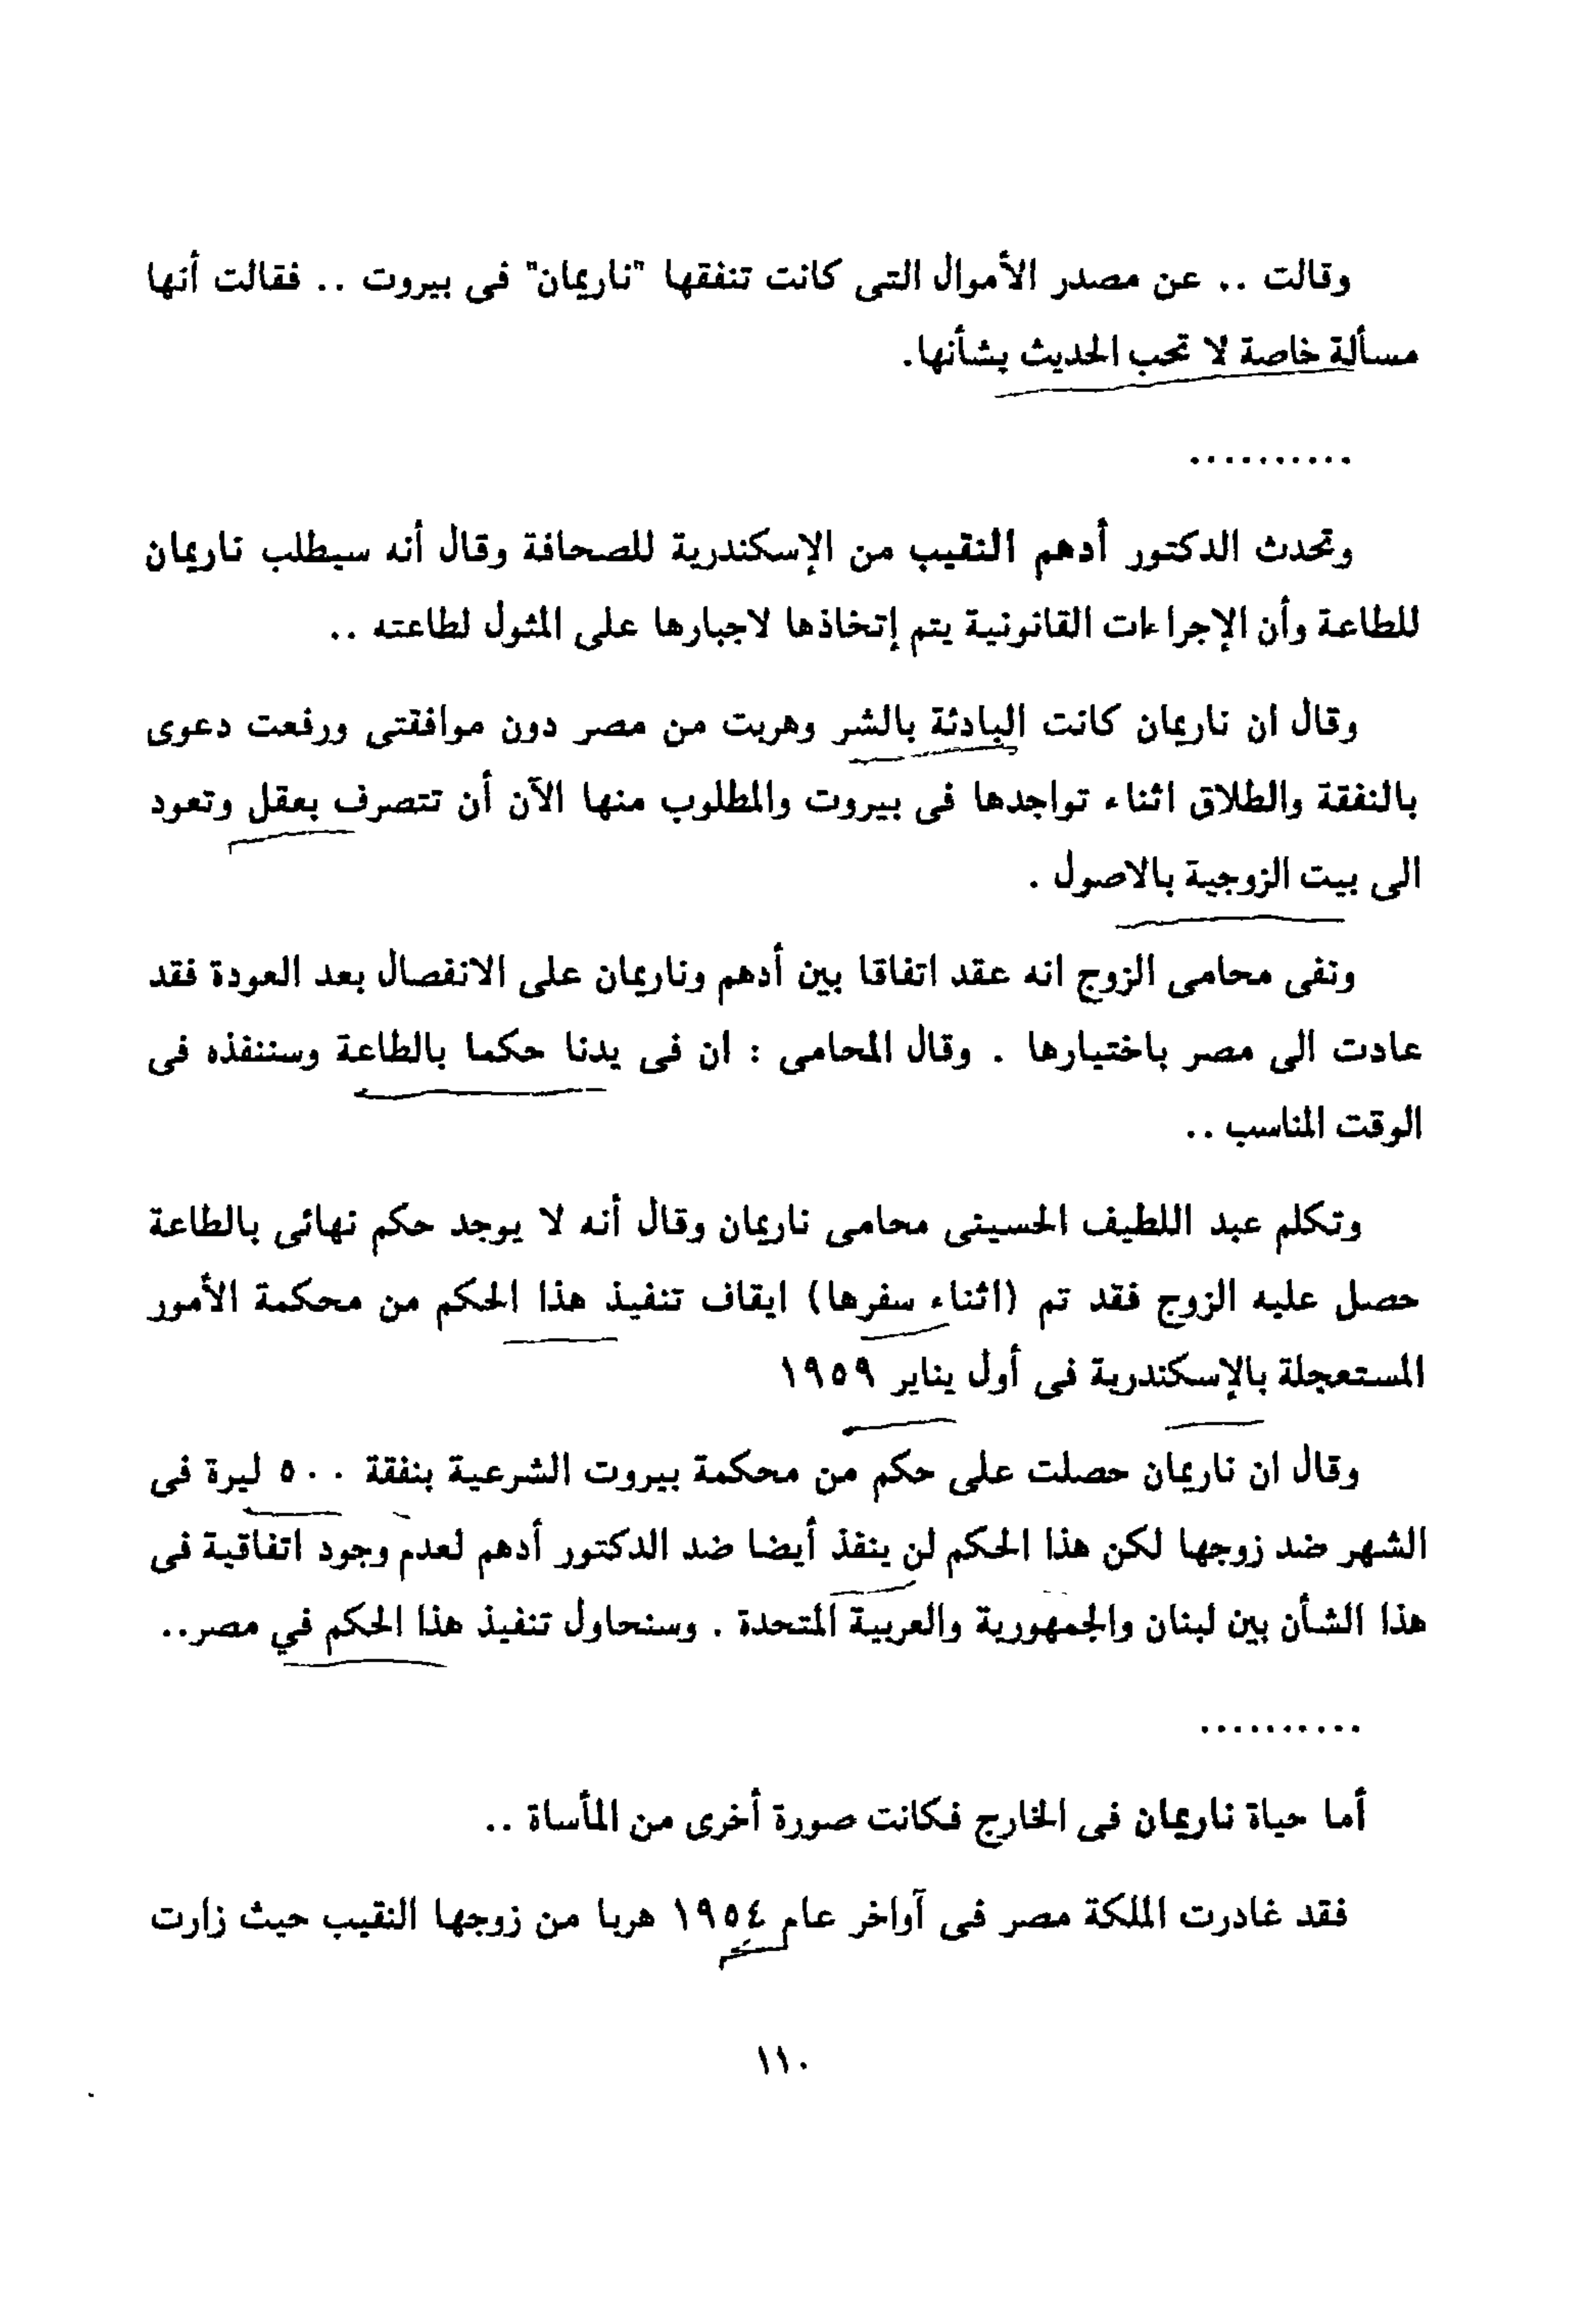 وقالت .. عن مصدر الأموال التى كانت تنفقها "ناريمان" فى بيروت .. فقالت أنها
مسألة خاصة لا تحب الحديث بشأنها.
..........
وتحدث الدكتور أدهم النقيب من الإسكندرية للصحافة وقال أنه سيطلب ناريمان
للطاعة وأن الإجراءات القانونية يتم إتخاذها لاجبارها على المثول لطاعته ..
وقال ان ناريمان كانت البادئة بالشر وهربت من مصر دون موافقتى ورفعت دعوى
بالنفقة والطلاق اثناء تواجدها فى بيروت والمطلوب منها الآن أن تتصرف بعقل وتعود
الى بيت الزوجية بالاصول .
ونفى محامى الزوج انه عقد اتفاقا بين أدهم وناريمان على الانفصال بعد العودة فقد
عادت الى مصر باختيارها . وقال المحامى : ان فى يدنا حكما بالطاعة وسننفذه فى
الوقت المناسب ..
وتكلم عبد اللطيف الحسينى محامى ناريمان وقال أنه لا يوجد حكم نهائى بالطاعة
حصل عليه الزوج فقد تم (اثناء سفرها) ايقاف تنفيذ هذا الحكم من محكمة الأمور
المستعجلة بالإسكندرية فى أول يناير ١٩٥٩
وقال ان ناريمان حصلت على حكم من محكمة بيروت الشرعية بنفقة ٥٠٠ ليرة فى
الشهر ضد زوجها لكن هذا الحكم لن ينفذ أيضا ضد الدكتور أدهم لعدم وجود اتفاقية فى
هذا الشأن بين لبنان والجمهورية والعربية المتحدة . وسنحاول تنفيذ هذا الحكم في مصر..
..........
أما حياة ناريمان فى الخارج فكانت صورة أخرى من المأساة ..
فقد غادرت الملكة مصر فى آواخر عام ١٩٥٤ هربا من زوجها النقيب حيث زارت
١١٠